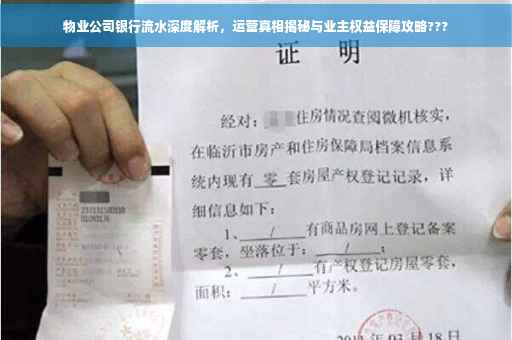 物业公司银行流水深度解析，运营真相揭秘与业主权益保障攻略???
证 明
经对： 住房情况查阅微机核实，
在临沂市房产和住房保障局档案信息系
统内现有 零 套房屋产权登记记录，详
细信息如下：
1、 / 有商品房网上登记备案
零套，坐落位于： / ；
2、 / 有产权登记房屋零套，
面积： / 平方米。
03月18日